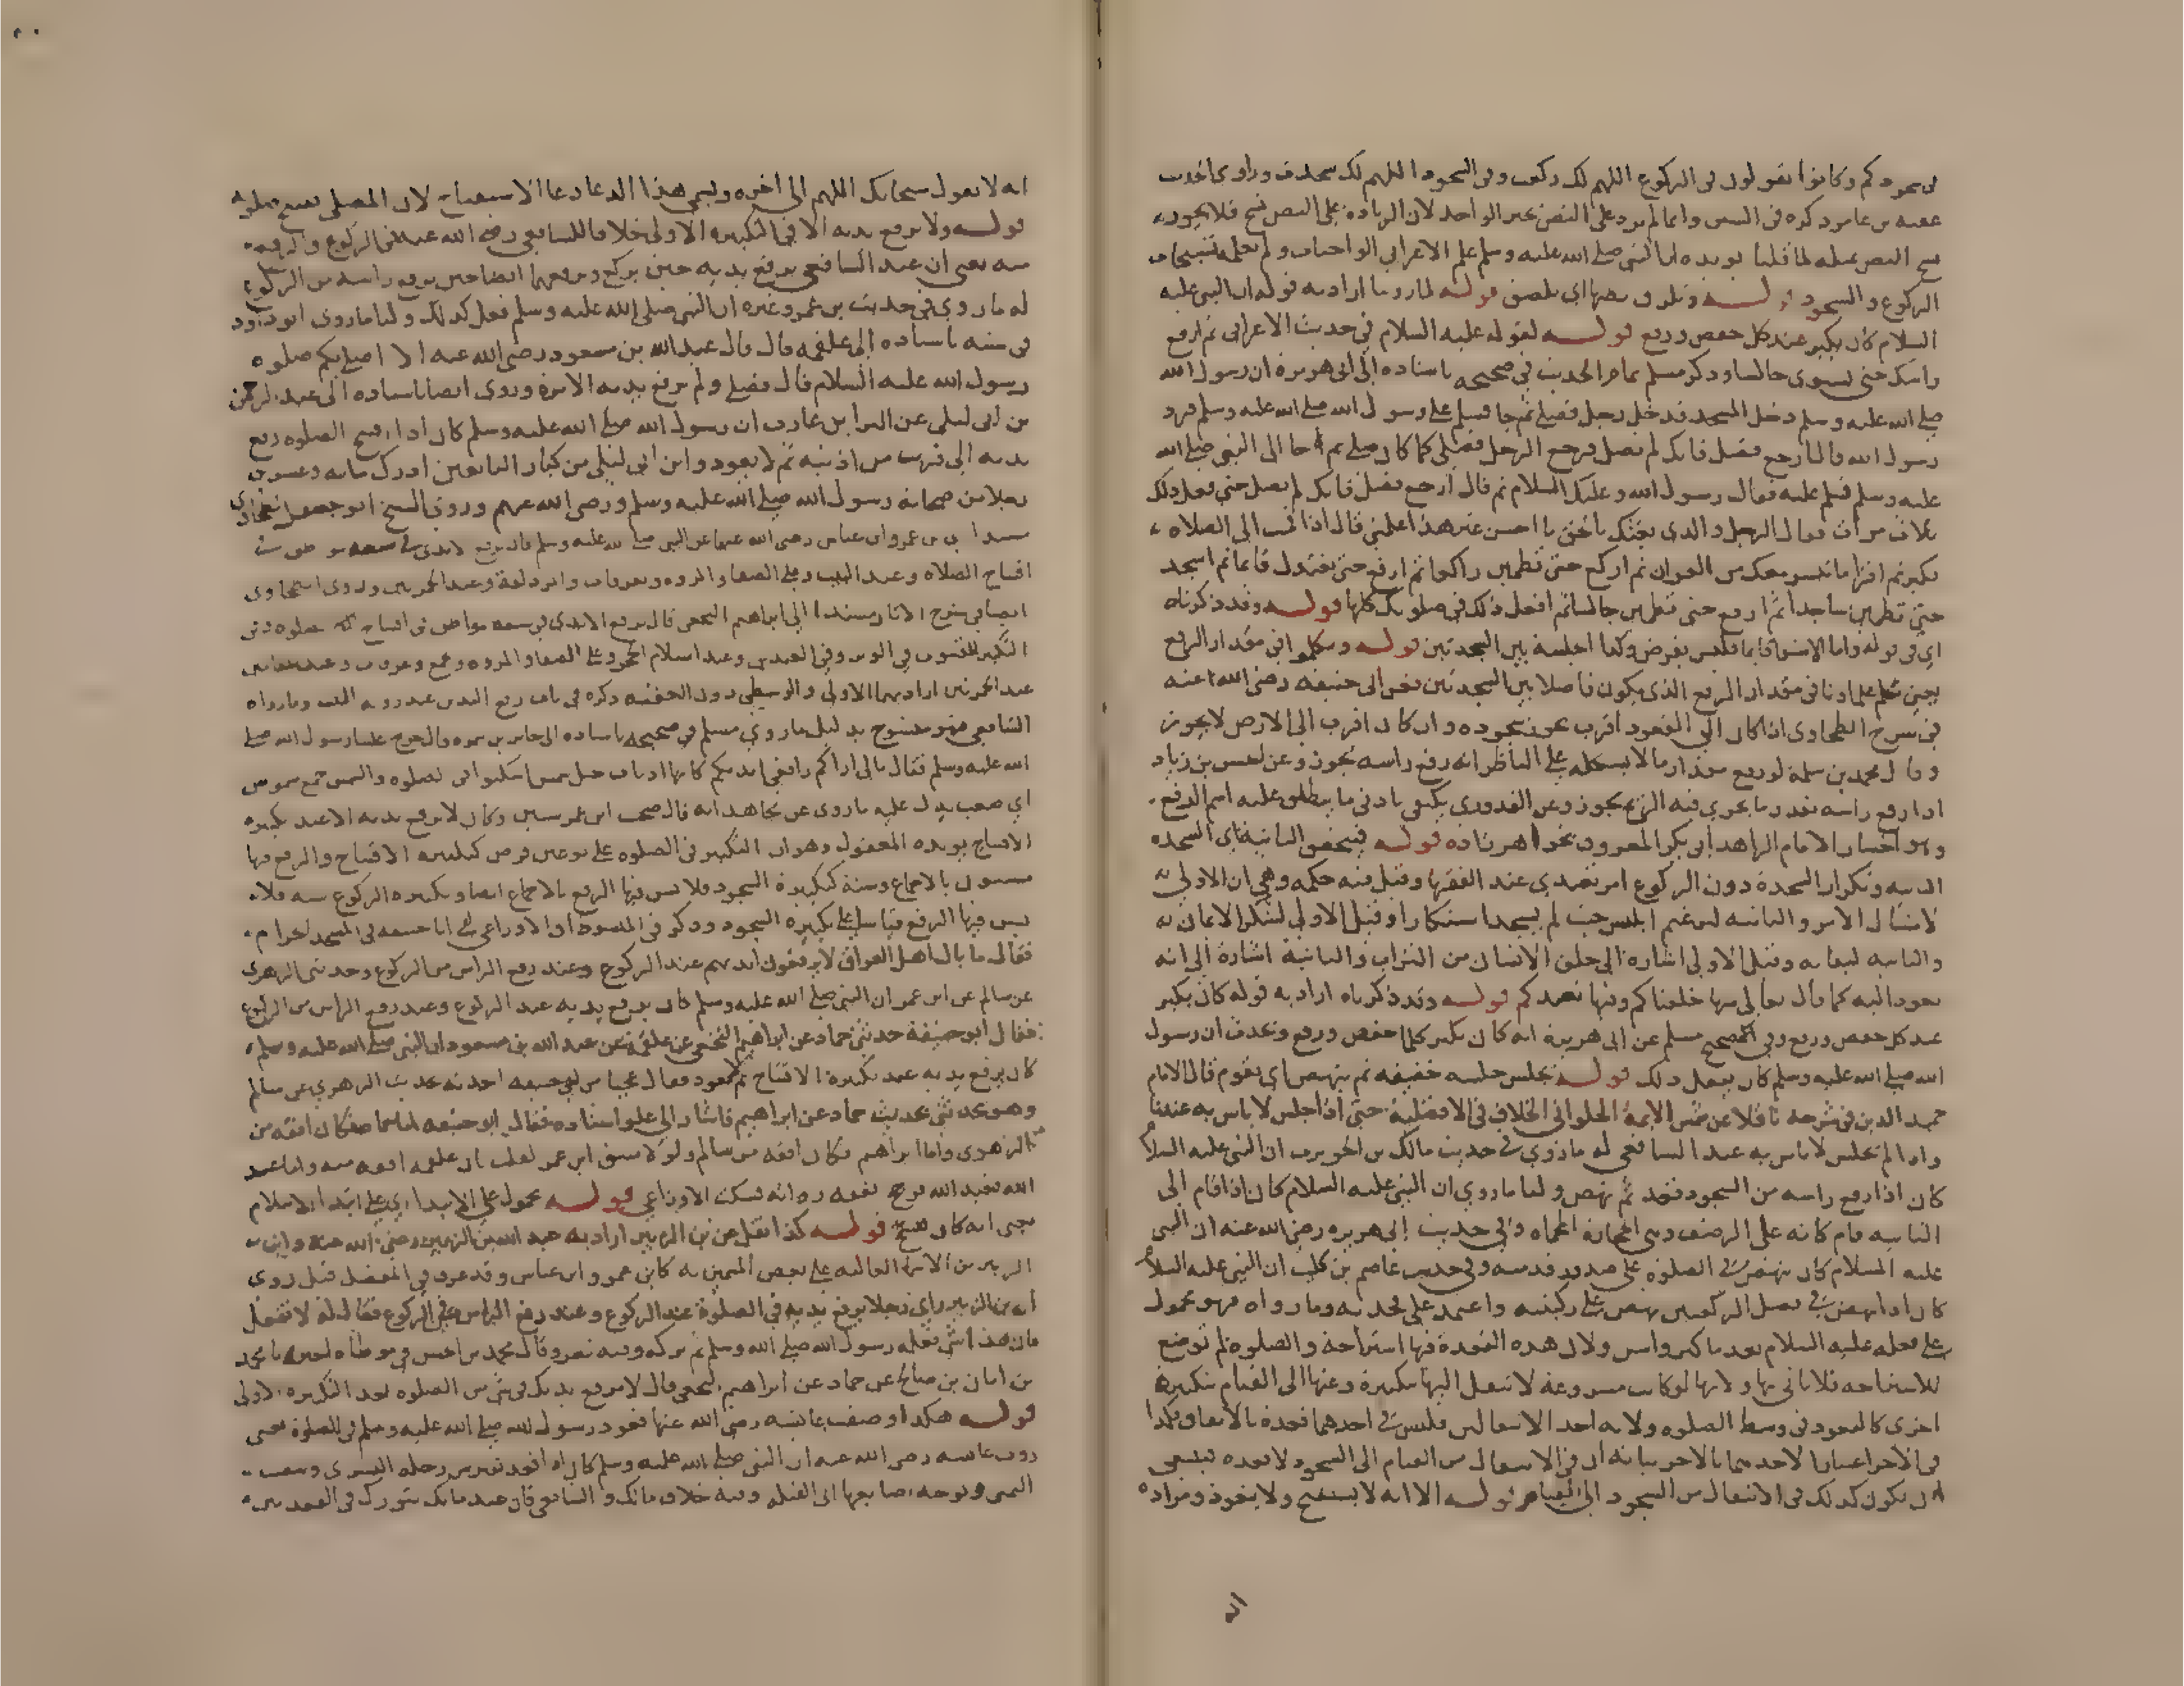 في سجودكم وكانوا يقولون في الركوع اللهم لك ركعت وفي السجود اللهم لك سجدت وراوي الحديث
عقبة بن عامر ذكره في السنن وانما لم يزد على النص بخبر الواحد لان الزيادة على النص نسخ فلا يجوز
نسخ النص بمثله لما قلنا يؤيده ان النبي صلى الله عليه وسلم علم الاعرابي الواجبات ولم يعلمه تسبيحات
الركوع والسجود قوله وتلزق بطنها اي تلصق قوله لما روينا اراد به قوله ان النبي عليه
السلام كان يكبر عند كل خفض ورفع قوله لقوله عليه السلام في حديث الاعرابي ثم ارفع
راسك حتى تستوي جالسا وذكر مسلم تمام الحديث في صحيحه باسناده الى ابي هريرة ان رسول الله
صلى الله عليه وسلم دخل المسجد فدخل رجل فصلى ثم جا فسلم على رسول الله صلى الله عليه وسلم فرد
رسول الله قال ارجع فصل فانك لم تصل فرجع الرجل فصلى كما كان صلى ثم جا الى النبي صلى الله
عليه وسلم فسلم عليه فقال رسول الله وعليك السلام ثم قال ارجع فصل فانك لم تصل حتى فعل ذلك
ثلاث مرات فقال الرجل والذي بعثك بالحق ما احسن غير هذا علمني قال اذا قمت الى الصلاة
فكبر ثم اقرا ما تيسر معك من القران ثم اركع حتى تطمين راكعا ثم ارفع حتى تعتدل قائما ثم اسجد
حتى تطمين ساجدا ثم ارفع حتى تطمين جالسا ثم افعل ذلك في صلوتك كلها قوله وقد ذكرناه
اي في قوله واما الاستواء قايما فليس بفرض وكذا الجلسة بين السجدتين قوله وتكلموا في مقدار الرفع
يعني تكلم علماونا في مقدار الرفع الذي يكون فاصلا بين السجدتين فعن ابي حنيفة رضي الله عنه
في شرح الطحاوي اذا كان الى القعود اقرب يجوز سجوده وان كان اقرب الى الارض لا يجوز
وقال محمد بن سلمة لو رفع مقدار ما لا يشكل على الناظر انه رفع راسه يجوز وعن الحسن بن زياد
اذا رفع راسه بقدر ما يجري فيه الريح يجوز وعن القدوري يكتفي بادنى ما يطلق عليه اسم الرفع
وهو اختيار الامام الزاهد ابي بكر المعروف بخواهر زاده قوله فيخفض الثانية اي السجدة
الثانية وتكرار السجدة دون الركوع امر تعبدي عند الفقها وقيل فيه حكمة وهي ان الاولى
لامتثال الامر والثانية لترغيم ابليس حيث لم يسجد استكبارا وقيل الاولى لشكر الايمان
والثانية لبقائه وقيل الاولى اشارة الى خلق الانسان من التراب والثانية اشارة الى انه
يعود اليه كما قال تعالى منها خلقناكم وفيها نعيدكم قوله وقد ذكرناه اراد به قوله كان يكبر
عند كل خفض ورفع وفي الصحيح مسلم عن ابي هريرة انه كان يكبر كلما خفض ورفع ويحدث ان رسول
الله صلى الله عليه وسلم كان يفعل ذلك قوله يجلس جلسة خفيفة ثم ينهض اي يقوم قال الامام
حميد الدين في شرحه ناقلا عن شمس الايمة الحلواني الخلاف في الافضلية حتى اذا جلس لا باس به عندنا
واذا لم يجلس لا باس به عند الشافعي له ما روي في حديث مالك بن الحويرث ان النبي عليه السلام
كان اذا رفع راسه من السجود قعد ثم نهض ولنا ما روي ان النبي عليه السلام كان اذا قام الى
الثانية قام كانه على الرضف وهي الحجارة المحماة وفي حديث ابي هريرة رضي الله عنه ان النبي
عليه السلام كان ينهض في الصلوة على صدور قدميه وفي حديث عاصم بن كليب ان النبي عليه السلام
كان اذا نهض في فصل الركعتين نهض على ركبتيه واعتمد على فخذيه وما رواه فهو محمول
على فعله عليه السلام بعد ما كبر واسن ولان هذه القعدة فيها استراحة والصلوة لم توضع
للاستراحة فلا ياتي بها ولانها لو كانت مشروعة لانتقل اليها بتكبيرة وعنها الى القيام بتكبيرة
اخرى كالقعود في وسط الصلوة ولانه احد الانتقالين فليس في احدهما قعدة بالاتفاق فكذا
في الاخر اعتبارا لاحدهما بالاخر بيانه ان في الانتقال من القيام الى السجود لا قعدة فينبغي
ان يكون كذلك في الانتقال من السجود الى القيام قوله الا انه لا يستفتح ولا يتعوذ ومراده
انه
انه لا يقول سبحانك اللهم الى اخره ويسمى هذا الدعا دعا الاستفتاح لان المصلي يفتتح صلوته
قوله ولا يرفع يديه الا في التكبيرة الاولى خلافا للشافعي رضي الله عنه في الركوع والرفع
منه يعني ان عند الشافعي يرفع يديه حين يركع ويرفعهما ايضا حين يرفع راسه من الركوع
له ما روي في حديث بن عمر وغيره ان النبي صلى الله عليه وسلم فعل كذلك ولنا ما روى ابو داود
في سننه باسناده الى علقمة قال قال عبد الله بن مسعود رضي الله عنه الا اصلي بكم صلوة
رسول الله عليه السلام قال فصلى ولم يرفع يديه الا مرة وروى ايضا باسناده الى عبد الرحمن
بن ابي ليلى عن البرا بن عازب ان رسول الله صلى الله عليه وسلم كان اذا افتتح الصلوة رفع
يديه الى قريب من اذنيه ثم لا يعود وابن ابي ليلى من كبار التابعين ادرك مائة وعشرين
رجلا من صحابة رسول الله صلى الله عليه وسلم ورضي الله عنهم وروى الشيخ ابو جعفر الطحاوي
مسندا الى بن عمر وابن عباس رضي الله عنهما عن النبي صلى الله عليه وسلم قال ترفع الايدي في سبعة مواطن في
افتتاح الصلاة وعند البيت وعلى الصفا والمروة وبعرفات والمزدلفة وعند الجمرتين وروى الطحاوي
ايضا في شرح الاثار مسندا الى ابراهيم النخعي قال ترفع الايدي في سبعة مواطن في افتتاح الصلوة وفي
التكبير للقنوت في الوتر وفي العيدين وعند استلام الحجر وعلى الصفا والمروة وبجمع وعرفات وعند المقامين
عند الجمرتين اراد بهما الاولى والوسطى دون العقبة ذكره في باب رفع اليدين عند روية البيت وما رواه
الشافعي فهو منسوخ بدليل ما روى مسلم في صحيحه باسناده الى جابر بن سمرة قال خرج علينا رسول الله صلى
الله عليه وسلم فقال مالي اراكم رافعي ايديكم كانها اذناب خيل شمس اسكنوا في الصلوة والشمس جمع شموس
اي صعب يدل عليه ما روى عن مجاهد انه قال صحبت ابن عمر سنين وكان لا يرفع يديه الا عند تكبيرة
الافتتاح يويده المعقول وهو ان التكبير في الصلوة على نوعين فرض كتكبيرة الافتتاح والرفع فيها
مسنون بالاجماع وسنة كتكبيرة السجود فلا يسن فيها الرفع بالاجماع ايضا وتكبيرة الركوع سنة فلا
يسن فيها الرفع قياسا على تكبيرة السجود وذكر في المبسوط ان الاوزاعي لقي ابا حنيفة في المسجد الحرام
فقال ما بال اهل العراق لا يرفعون ايديهم عند الركوع وعند رفع الراس من الركوع وحدثني الزهري
عن سالم عن ابن عمر ان النبي صلى الله عليه وسلم كان يرفع يديه عند الركوع وعند رفع الراس من الركوع
فقال ابو حنيفة حدثني حماد عن ابراهيم النخعي عن علقمة عن عبد الله بن مسعود ان النبي صلى الله عليه وسلم
كان يرفع يديه عند تكبيرة الافتتاح ثم لا يعود فقال عجبا من ابي حنيفة احدثه بحديث الزهري عن سالم
وهو يحدثني بحديث حماد عن ابراهيم فاشار الى علو اسناده فقال ابو حنيفة اما حماد فكان افقه من
الزهري واما ابراهيم فكان افقه من سالم ولولا سبق ابن عمر لقلت بان علقمة افقه منه واما عبد
الله فعبد الله فرجح بفقه رواته فسكت الاوزاعي قوله محمول على الابتدا اي على ابتدا الاسلام
يعني انه كان فنسخ قوله كذا نقل عن بن الزبير اراد به عبد الله بن الزبير رضي الله عنه وابن
الزبير من الاسماء الغالبة على بعض المسمين به كابن عمر وابن عباس وقد عرف في المفصل قيل روى
ان بن الزبير راى رجلا يرفع يديه في الصلوة عند الركوع وعند رفع الراس من الركوع فقال له لا تفعل
فان هذا شي فعله رسول الله صلى الله عليه وسلم ثم تركه وفيه نظر وقال محمد بن الحسن في موطاه اخبرنا محمد
بن ابان بن صالح عن حماد عن ابراهيم النخعي قال لا ترفع يديك في شي من الصلوة بعد التكبيرة الاولى
قوله هكذا وصفت عايشة رضي الله عنها قعود رسول الله صلى الله عليه وسلم في الصلوة يعني
روت عايشة رضي الله عنها ان النبي صلى الله عليه وسلم كان اذا قعد افترش رجله اليسرى ونصب
اليمنى ووجه اصابعها الى القبلة وفيه خلاف مالك والشافعي فان عند مالك يتورك في القعدتين